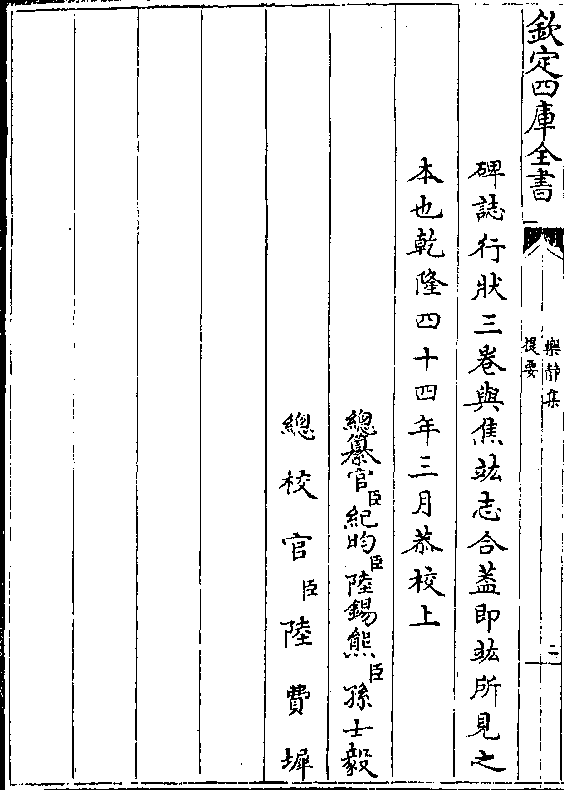 欽定四庫全書
樂静集
提要
二
碑誌行狀三卷與焦竑志合葢即竑所見之
本也乾隆四十四年三月恭校上
總纂官臣紀昀臣陸錫熊臣孫士毅
總校官臣陸費墀